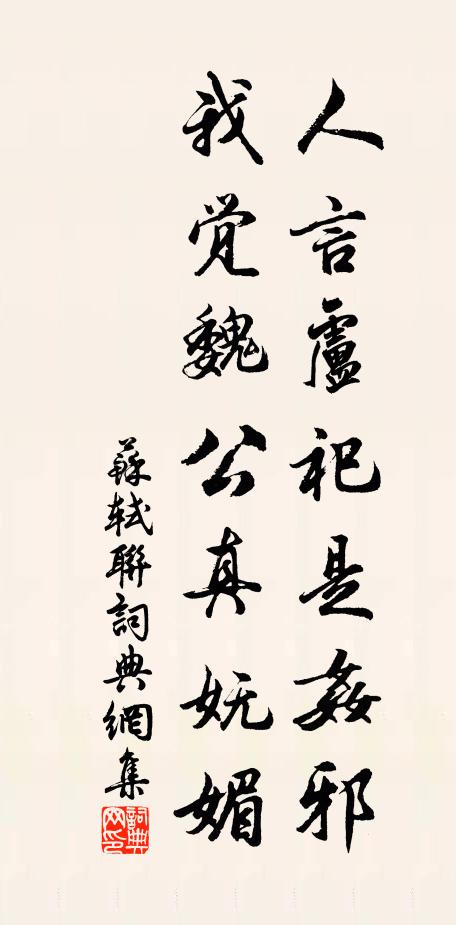 人言盧祀是姦邪
我覺魏公真妩媚
蘇軾聯詞典網集
詞典网印